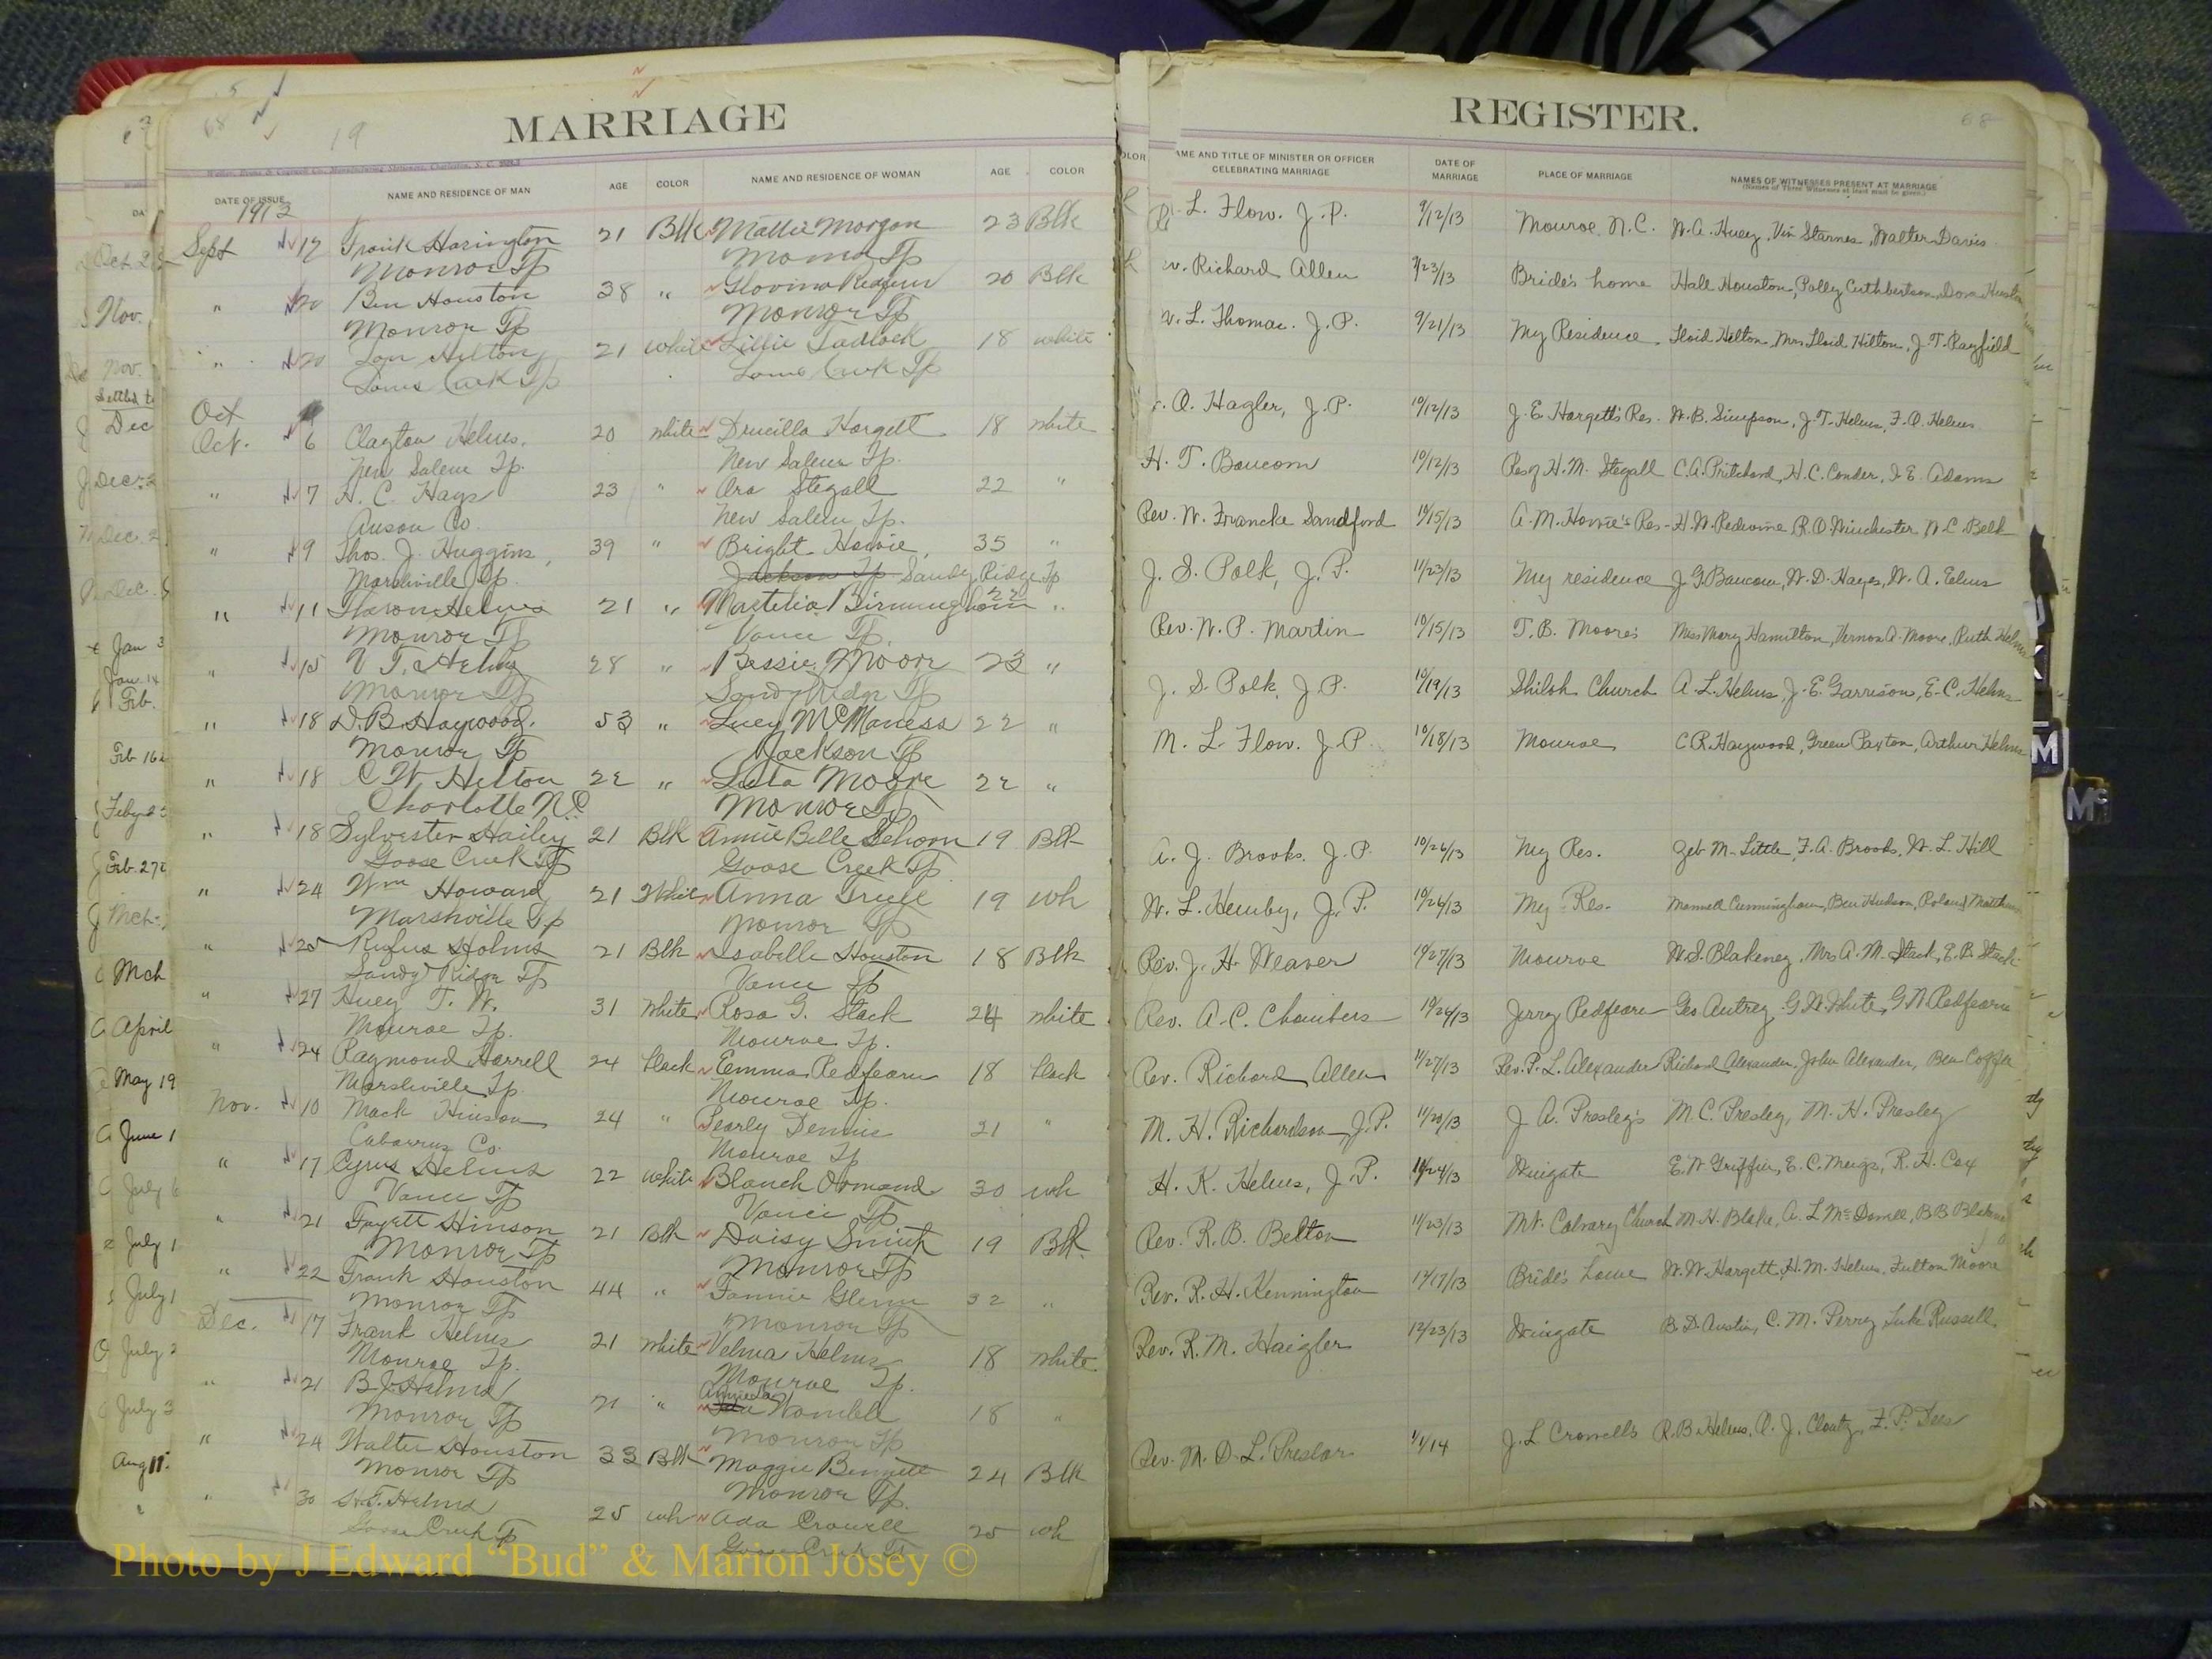 MARRIAGE
REGISTER.
68
19
68
DATE OF ISSUE
NAME AND RESIDENCE OF MAN
AGE
COLOR
NAME AND RESIDENCE OF WOMAN
AGE
COLOR
AME AND TITLE OF MINISTER OR OFFICER
CELEBRATING MARRIAGE
DATE OF
MARRIAGE
PLACE OF MARRIAGE
NAMES OF WITNESSES PRESENT AT MARRIAGE
(Names of Three Witnesses at least must be given.)
1913
Sept 17 Frank Harington 21 Blk Mallie Morgan 23 Blk
Monroe Tp
L. Flow. J.P. 9/12/13 Monroe, N.C. W.A. Huey, Vin Starnes, Walter Davis
" 20 Ben Houston 38 " 20 Blk
Monroe Tp Monroe Tp
Richard Allen 9/23/13 Bride's home Hall Houston, Polley Cuthbertson, Dora
" 20 Hilton 21 white Lillie Tadlock 18 white
L. Thomas. J.P. 9/21/13 My Residence Floid Helton, Mrs Floid Hilton, J.T. Rayfield
Oct
Oct. 6 Clayton Helms. 20 white Drucilla Hargett 18 white
New Salem Tp. New Salem Tp.
O. Hagler, J.P. 10/12/13 J.E. Hargett's Res. W.B. Simpson, J.T. Helms, F.O. Helms
" 7 H. C. Hays 23 " Ora Stegall 22 "
Anson Co. New Salem Tp.
H. T. Baucom 10/12/13 H.M. Stegall C.A. Pritchard, H.C. Conder, J.E. Adams
" 9 Thos. J. Huggins, 39 " Bright Howie, 35 "
Marshville Tp. Jackson Tp Sandy Ridge Tp
Rev. W. Francke Sandford 10/15/13 A.M. Howie's Res- H.W. Redwine, R.O. Winchester, W.C. Belk
" 11 Helms 21 " Birmingham 22 "
Monroe Tp Vance Tp.
J. S. Polk, J.P. 11/23/13 My residence J.G. Baucom, W.D. Hayes, W.A. Helms
" 15 V T. Helms 28 " Bessie Moore 23 "
Monroe Tp Sandy Ridge Tp
Rev. W. P. Martin 10/15/13 T.B. Moore's Miss Mary Hamilton, Vernon A. Moore, Ruth Helms
" 18 D.B. Haywood. 53 " Lucy McManess 22 "
Monroe Tp Jackson Tp
J. S. Polk, J.P. 10/19/13 Shiloh Church A.L. Helms, J.E. Garrison, E.C. Helms
" 18 C W Helton 22 " Lula Moore 22 "
Charlotte N.C. Monroe Tp
M. L. Flow. J.P. 10/18/13 Monroe C.R. Haywood, Green Paxton, Arthur Helms
" 18 Sylvester Hailey 21 Blk Annie Belle Sehorn 19 Blk
Goose Creek Tp Goose Creek Tp
A. J. Brooks. J.P. 10/26/13 My Res. Zeb M. Little, F.A. Brooks, W.L. Hill
" 24 Wm Howard 21 White Anna Trull 19 wh
Marshville Tp Monroe Tp
W. L. Hemby, J.P. 10/26/13 My Res. Cunningham, Ben Hudson, Roland Matthews
" 25 Rufus Holms 21 Blk Isabelle Houston 18 Blk
Sandy Ridge Tp Vance Tp
Rev. J. H. Weaver 10/27/13 Monroe W.S. Blakeney, Mrs A.M. Stack, E.B. Stack
" 27 Huey T. W. 31 white Rosa G. Stack 24 white
Monroe Tp. Monroe Tp.
Rev. A. C. Chambers 10/26/13 Jerry Redfearn Geo Autrey, G.W. White, G N Redfearn
" 24 Raymond Harrell 24 black Emma Redfearn 18 black
Marshville Tp. Monroe Tp.
Rev. Richard Allen 11/27/13 Rev. P. L. Alexander Richard Alexander, John Alexander, Ben
Nov. 10 Mack Hinson 24 " Pearly Dennis 21 "
Cabarrus Co. Monroe Tp
M. H. Richardson, J.P. 11/20/13 J A. Presley's M.C. Presley, M.H. Presley
" 17 Cyrus Helms 22 white Blanch Ormand 30 wh
Vance Tp Vance Tp
H. K. Helms, J.P. Wingate E.W. Griffin, E.C. Meigs, R.H. Cox
" 21 Fayett Hinson 21 Blk Daisy Smith 19 Blk
Monroe Tp Monroe Tp
Rev. R. B. Belton 11/23/13 Mt. Calvary Church M.H. Blake, A. L McDowell, B B
" 22 Frank Houston 44 " Fannie Glenn 32 "
Monroe Tp Monroe Tp
Rev. R. H. Kennington 12/17/13 Bride's home W.W. Hargett, H.M. Helms, Fulton Moore
Dec. 17 Frank Helms 21 white Velma Helms 18 white
Monroe Tp. Monroe Tp.
Rev. R. M. Haigler 12/23/13 Wingate B.D. Austin, C.M. Perry, Luke Russell.
" 21 Helms 21 " Womble 18 "
Monroe Tp Monroe Tp
" 24 Walter Houston 33 Blk Maggie Bennett 24 Blk
Monroe Tp Monroe Tp.
" 30 Helms 25 wh Ada Crowell 25 wh
Goose Creek Tp Goose Creek Tp
Rev. M. D. L. Preslar 1/1/14 J.L Crowell's R.B. Helms, F.P. Dees
Nov.
Nov.
Settled
Dec
Dec
Jan 3
Jan. 14
Feb.
Feb 16
Feb 27
Mch
Mch
April
May 19
June 1
July 6
July 1
July 1
July 2
July 3
Aug 11
K
M
Mc
Photo by J Edward “Bud” & Marion Josey ©